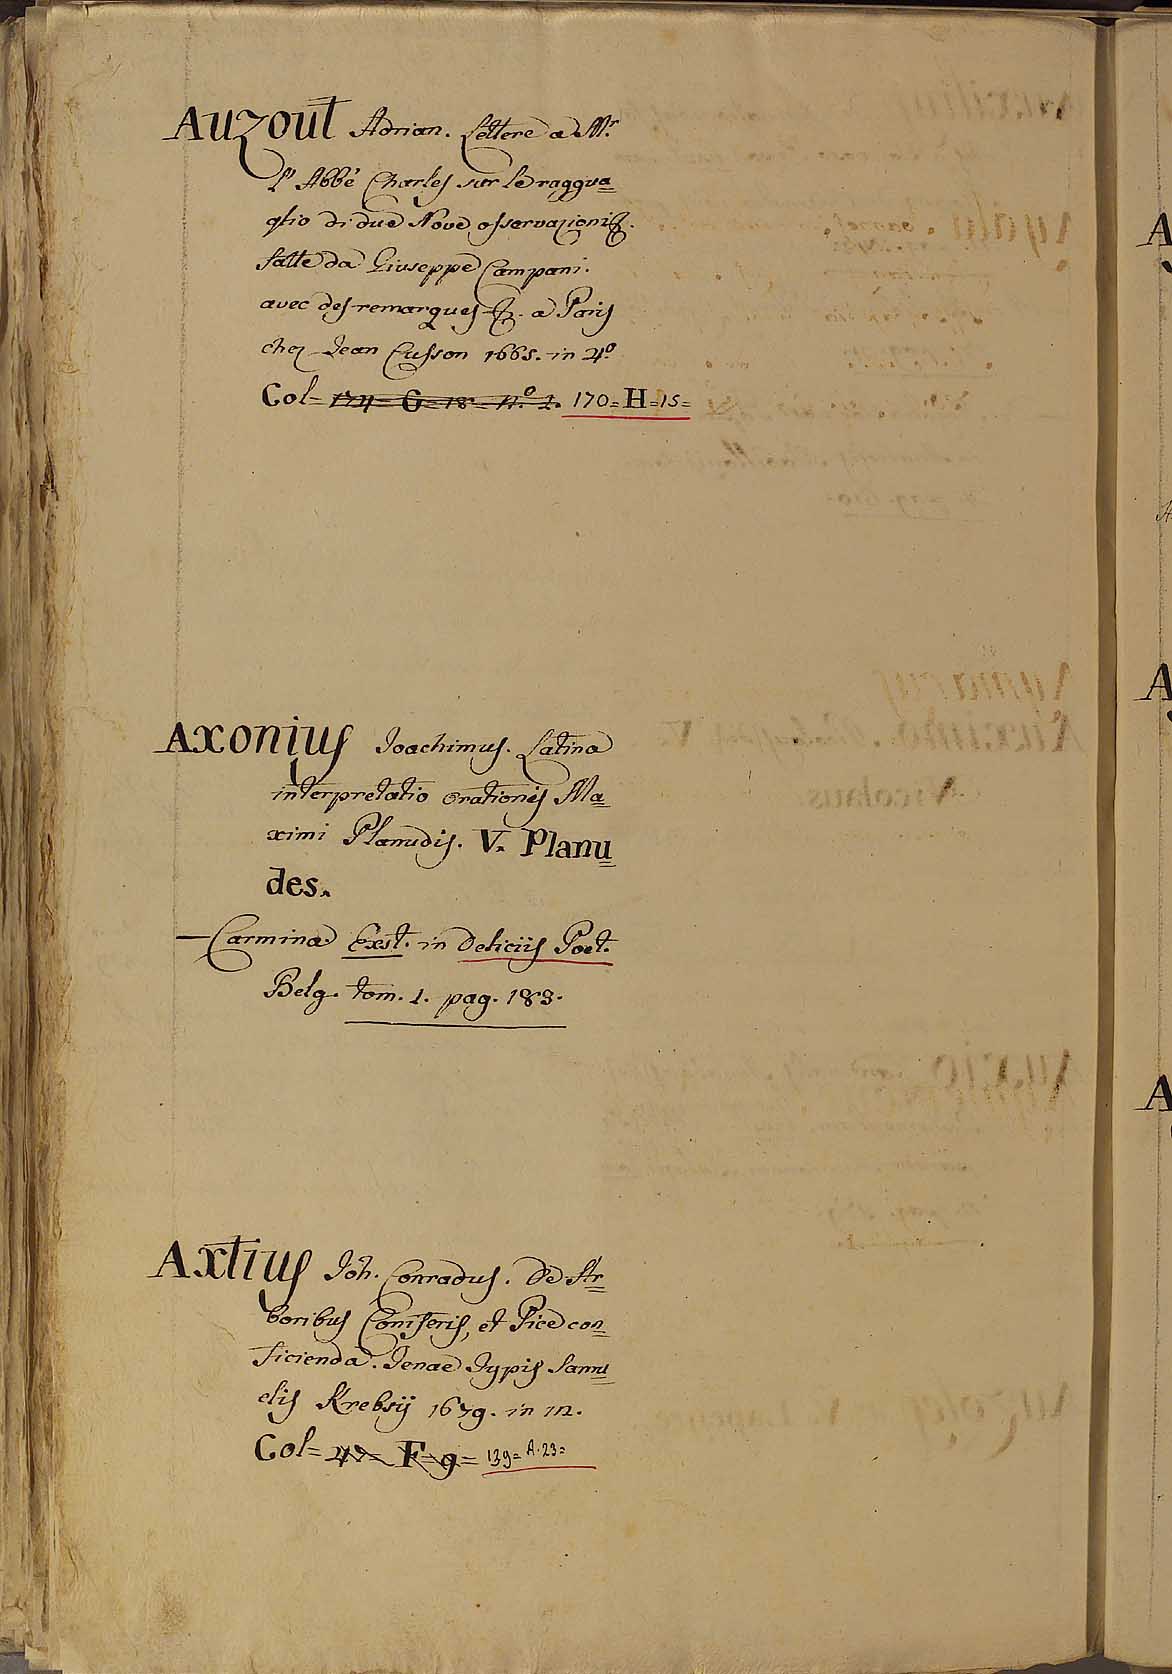 Auzout Adrian. Lettere a Mr.
l'Abbé Charles sur le raggua=
glio di due Nove osservazioni &.
fatte da Giuseppe Campani.
avec des remarques &. a Paris
chez Jean Cusson 1665. in 4º
Col= 174= G=18= Nº 2. 170=H=15=
Axonius Joachimus. Latina
interpretatio orationis Ma=
ximi Planudis. V. Planu=
des.
—Carmina Exst. in Deliciis Poet.
Belg. tom. 1. pag. 183.
Axtius Joh. Conradus. De Ar=
boribus Coniferis, et Pice con=
ficienda. Jenae Typis Samu=
elis Krebsij 1679. in 12.
Col= 47= F=9= 139= A.23=